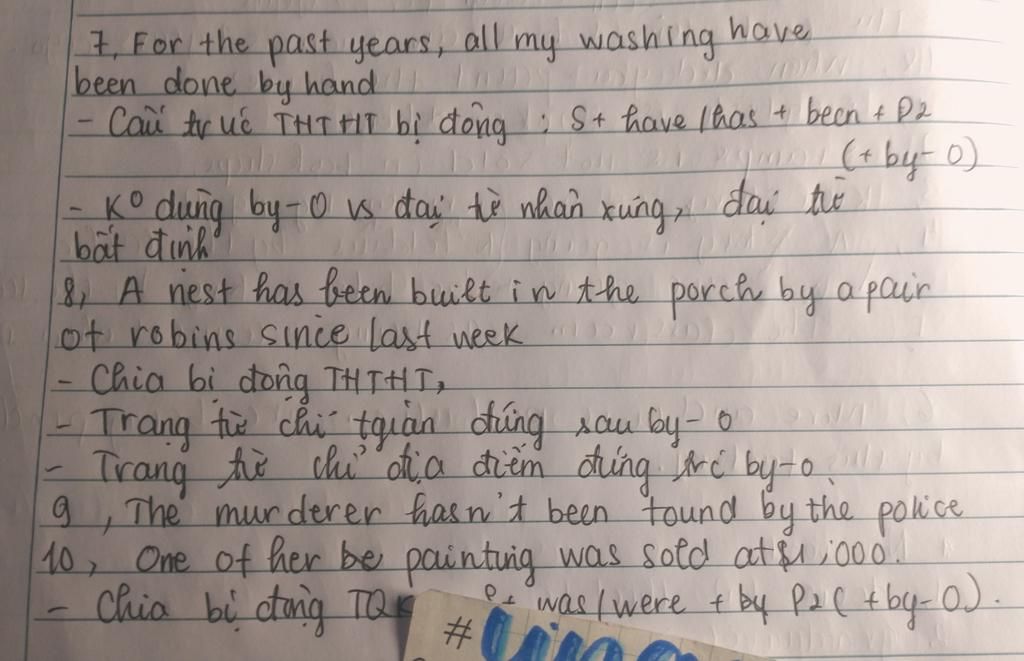 7, For the past years, all my washing have
been done by hand
- Cấu trúc THTHT bị động : S+ have/has + been + P2
(+ by-O)
- K° dùng by-O vs đại từ nhân xưng, đại từ
bất định
8, A nest has been built in the porch by a pair
of robins since last week
- Chia bị động THTHT,
- Trạng từ chỉ tgian đứng sau by-o
- Trạng từ chỉ địa điểm đứng trc by-o
9, The murderer hasn't been found by the police
10, One of her be painting was sold at $1,000.
- Chia bị động was/were + by P2 (+by-O).
#